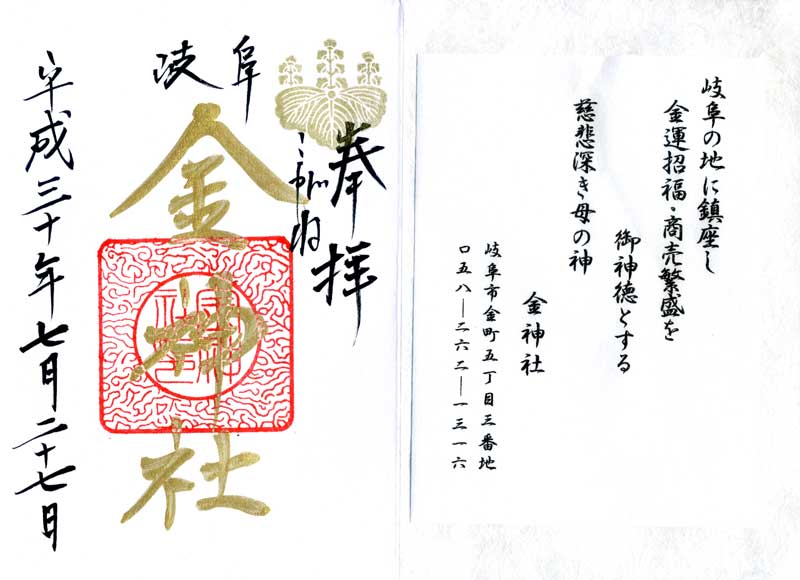 岐阜の地に鎮座し
金運招福・商売繁盛を
御神徳とする
慈悲深き母の神
金神社
岐阜市金町五丁目三番地
〇五八―二六二―一三一六
奉拝
こがね
岐阜
金神社
平成三十年七月二十七日